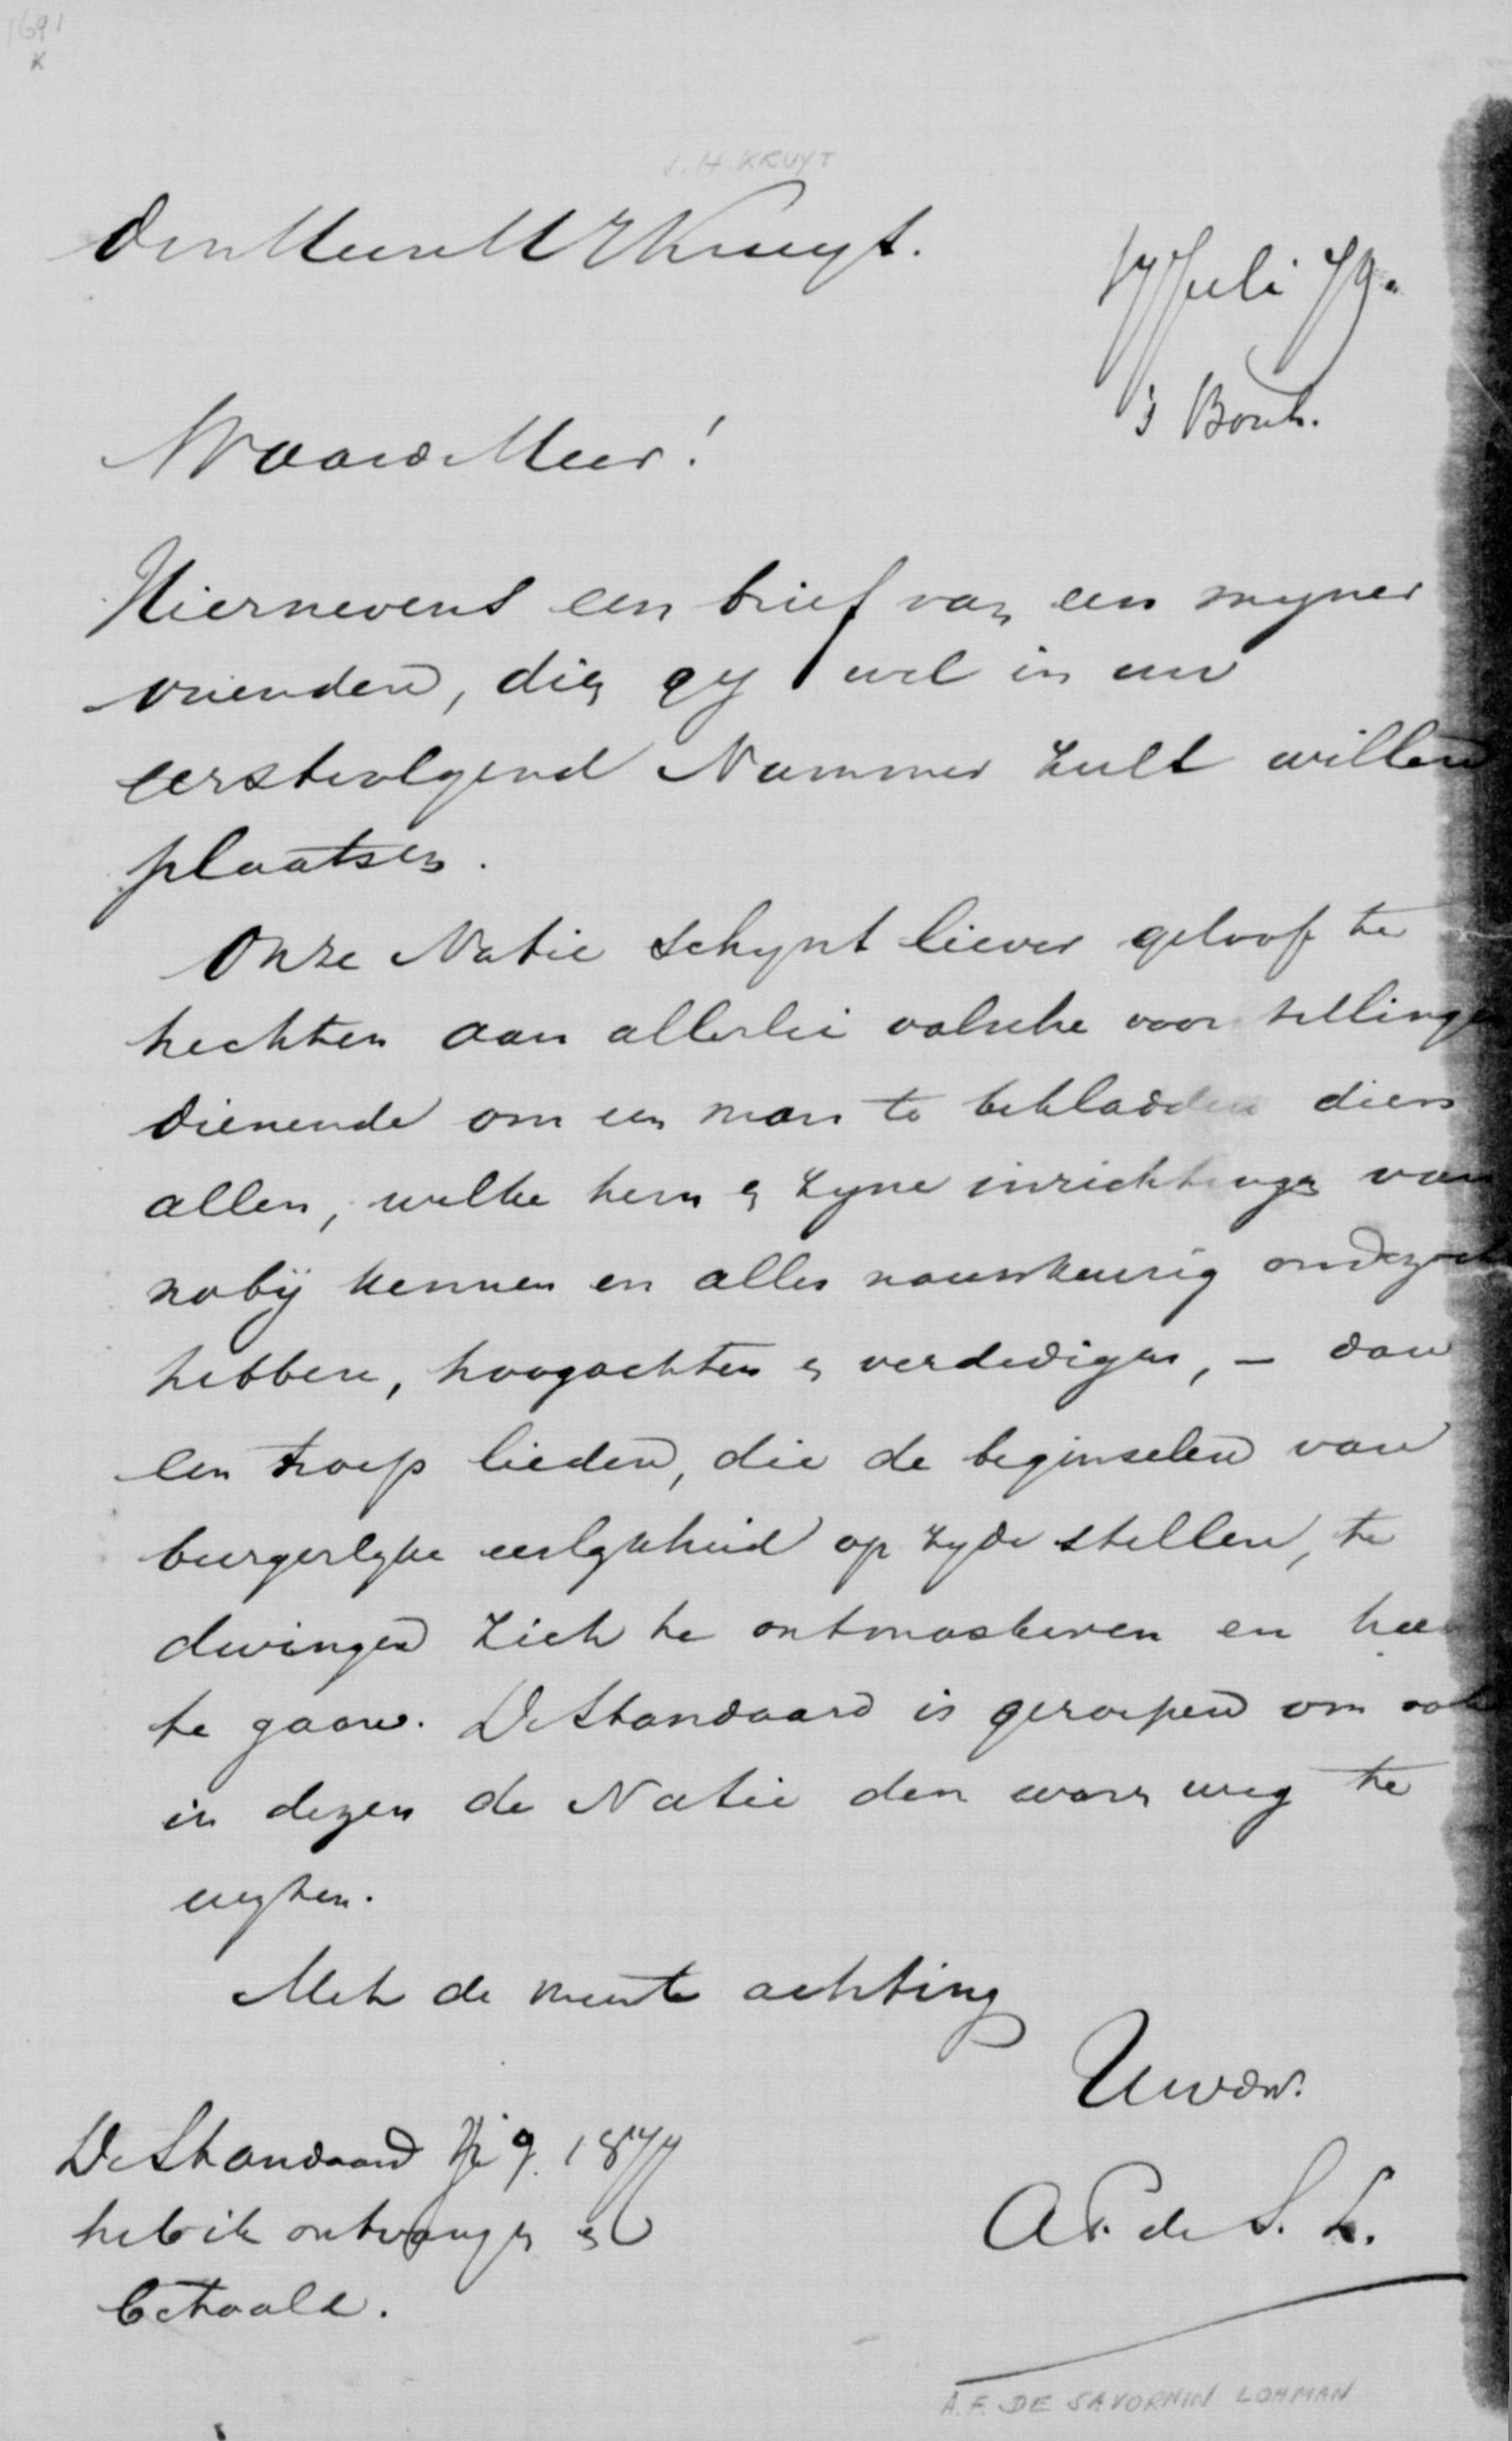 1691
K
J. H. KRUYT
Den Heer M Kruyt.
17 Juli 79.
's Bosch.
Waarde Heer!
Hiernevens een brief van een myner
vrienden, dien gy wel in uw
eerstvolgend Nummer zult willen
plaatsen.
Onze Natie schynt liever geloof te
hechten aan allerlei valsche voorstellingen
dienende om een man te bekladden dien
allen, welke hem en zyne inrichtingen van
naby kennen en alles nauwkeurig onderzocht
hebben, hoogachten en verdedigen, - dan
een troep lieden, die de beginselen van
burgerlyke eerlykheid op zyde stellen, te
dwingen zich te ontmaskeren en heen
te gaan. De Standaard is geroepen om ook
in dezen de Natie den waren weg te
wyzen.
Met de meeste achting
Uwdw.
A. F. de S. L.
De Standaard 1877
heb ik ontvangen en
betaald.
A. F. DE SAVORNIN LOHMAN